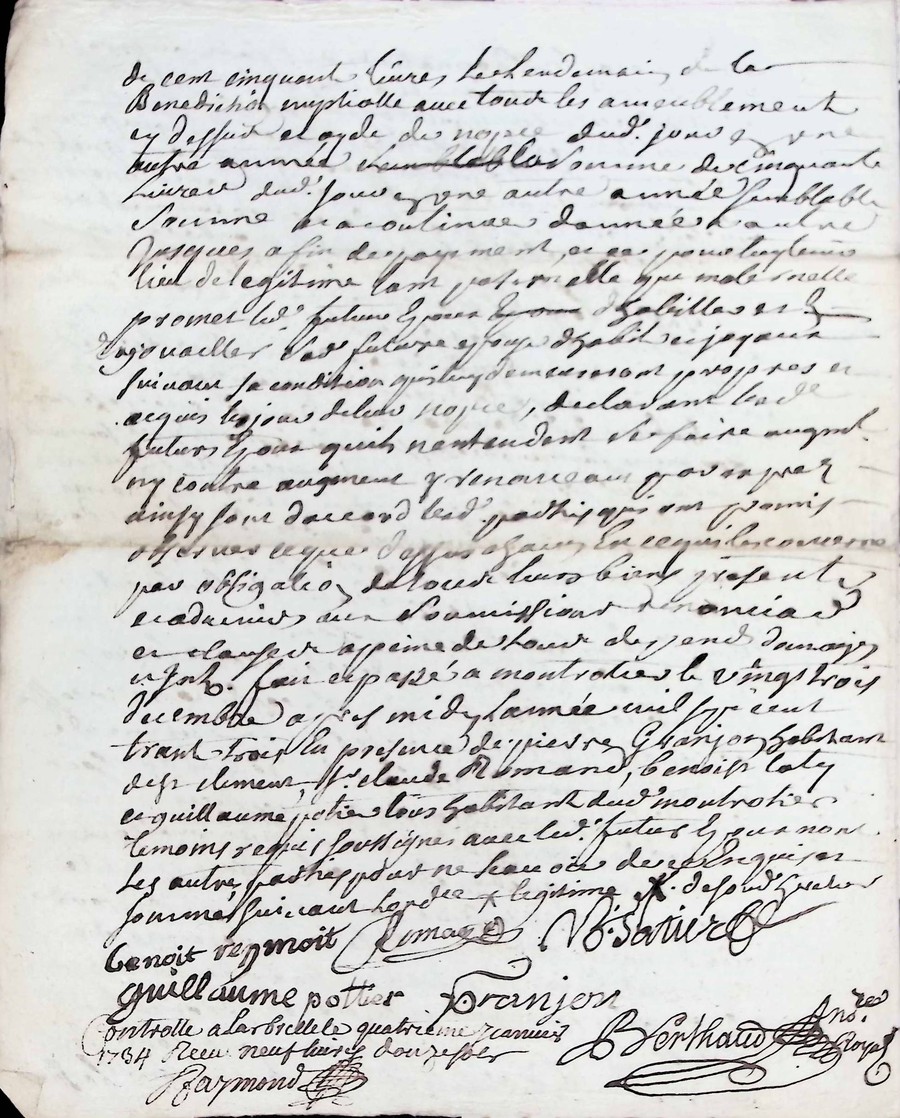 de cent cinquante livres le lendemain de la
Benediction nuptialle avec tous les ameublement
cy dessus et du jour de nopce dud. jour en une
autre année semblable somme de cinquante
livres dud. jour en une autre année semblable
somme et a continuer d'année a autre
jusques a fin de payement, et ce pour luy tenir
lieu de legitime tant paternelle que maternelle
promet led. futur Epoux d'habiller et
enjouailler lad. future epouse d'habits et joyaux
suivant sa condition qui luy demeureront propres et
acquis le jour de leur nopces, declarant lesd.
futurs Epoux qu'ils n'entendent se faire augmt.
ny contre augment y renonceant par exprez
ainsy sont d'accord lesd. parties qui ont promis
observer ce que dessus chacun En ce qui les concerne
par obligation de tous leurs biens presents
et advenir aux soumissions renonciaõns
et clauses a peine de tous despends domages
et Jnts. fait et passé a montrotier le vingt trois
decembre apres midy l'année mil sept cent
trante trois En presence de pierre Granjon habitant
de st clement, sr. claude Romand, benoist
et guillaume potier tous habitant dud. montrotier
temoins requis soussignés avec led. futur Epoux non
les autres parties pour ne sçavoir de ce Enquises et
sommés suivant l'ordce x legitime x. de sond.
Benoit reymoit Romand
guillaume pottier Granjon
Controllé a Larbrelle le quatrieme Janvier
1734 Receu neuf livres douze sols
Raymond Berthaud Nore Royal